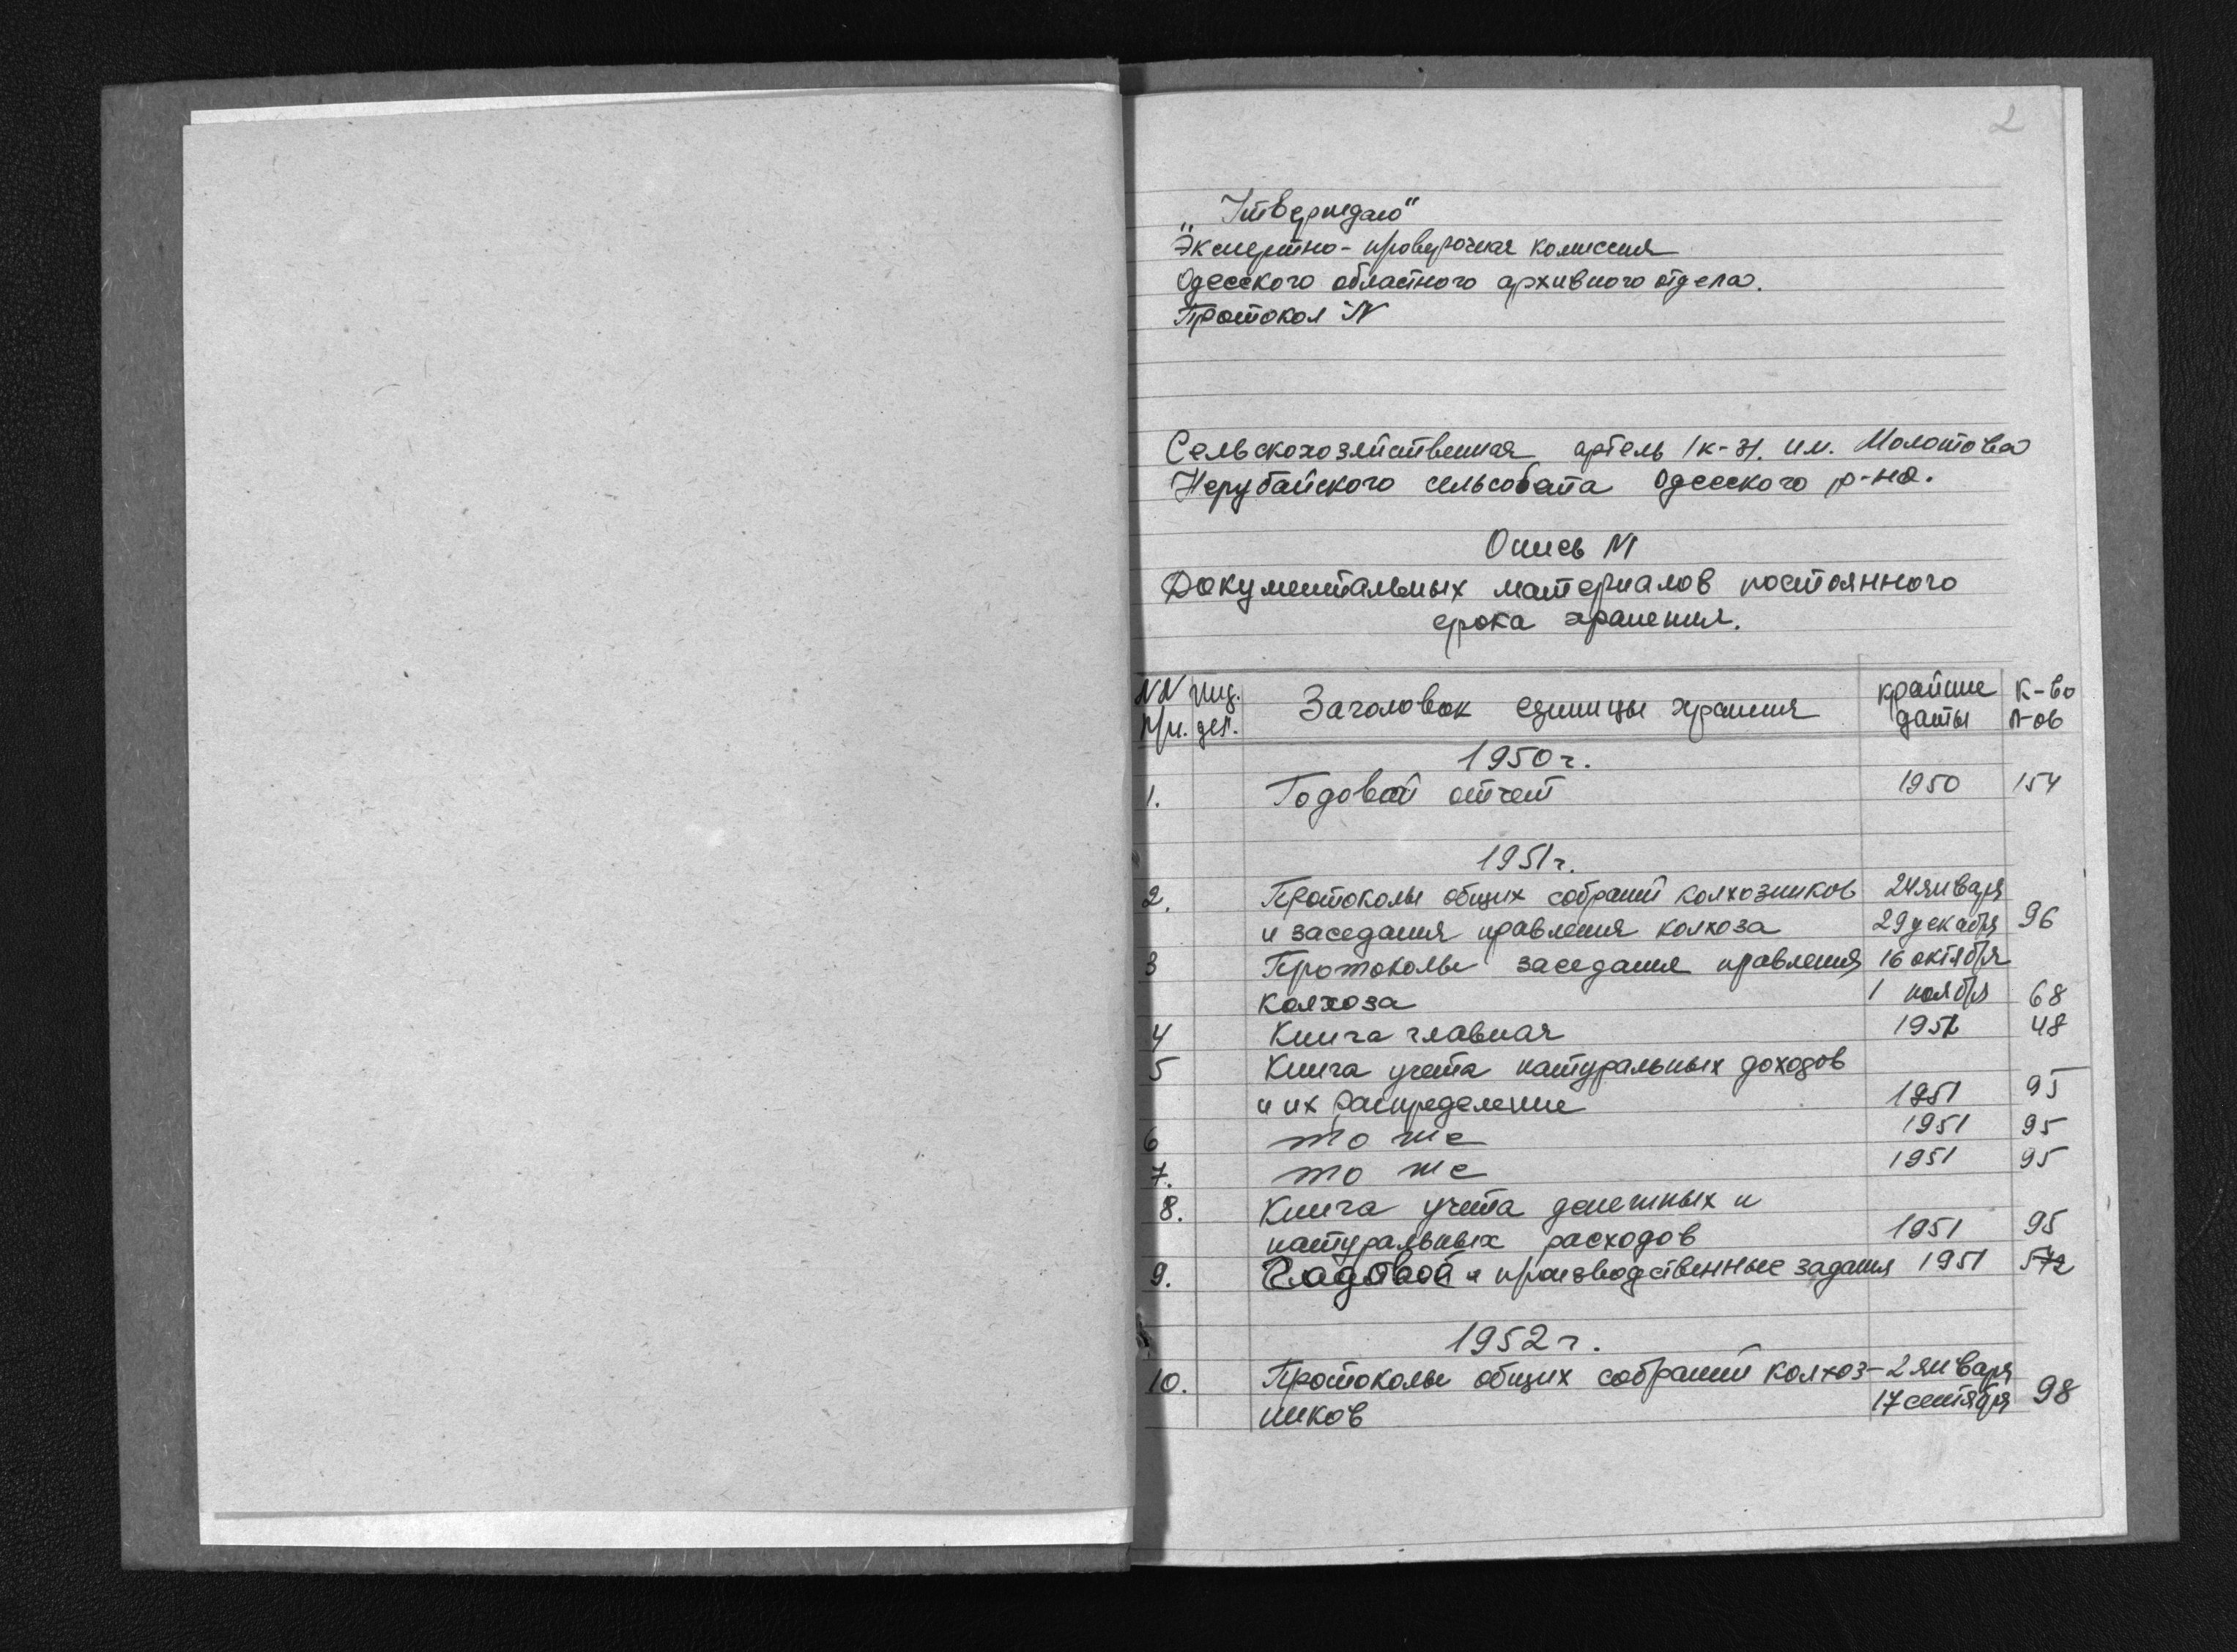 2
"Утверждаю"
Экспертно-проверочная комиссия
Одесского областного архивного отдела.
Протокол N
Сельскохозяйственная артель /к-з/. им. Молотова
Нерубайского сельсовета Одесского р-на.
Опись N1
Документальных материалов постоянного
срока хранения.
NN п/п. Инд. дел. Заголовок единицы хранения крайние даты К-во л-ов
1950г.
1. Годовой отчет 1950 154
1951г.
2. Протоколы общих собраний колхозников 24 января
и заседания правления колхоза 29 декабря 96
3 Протоколы заседания правления 16 октября
колхоза 1 ноября 68
4 Книга главная 1951 48
5 Книга учета натуральных доходов
и их распределение 1951 95
6 то же 1951 95
7. то же 1951 95
8. Книга учета денежных и
натуральных расходов 1951 95
9. Годовой и производственные задания 1951
1952г.
10. Протоколы общих собраний колхоз- 2 января
ников 17 сентября 98